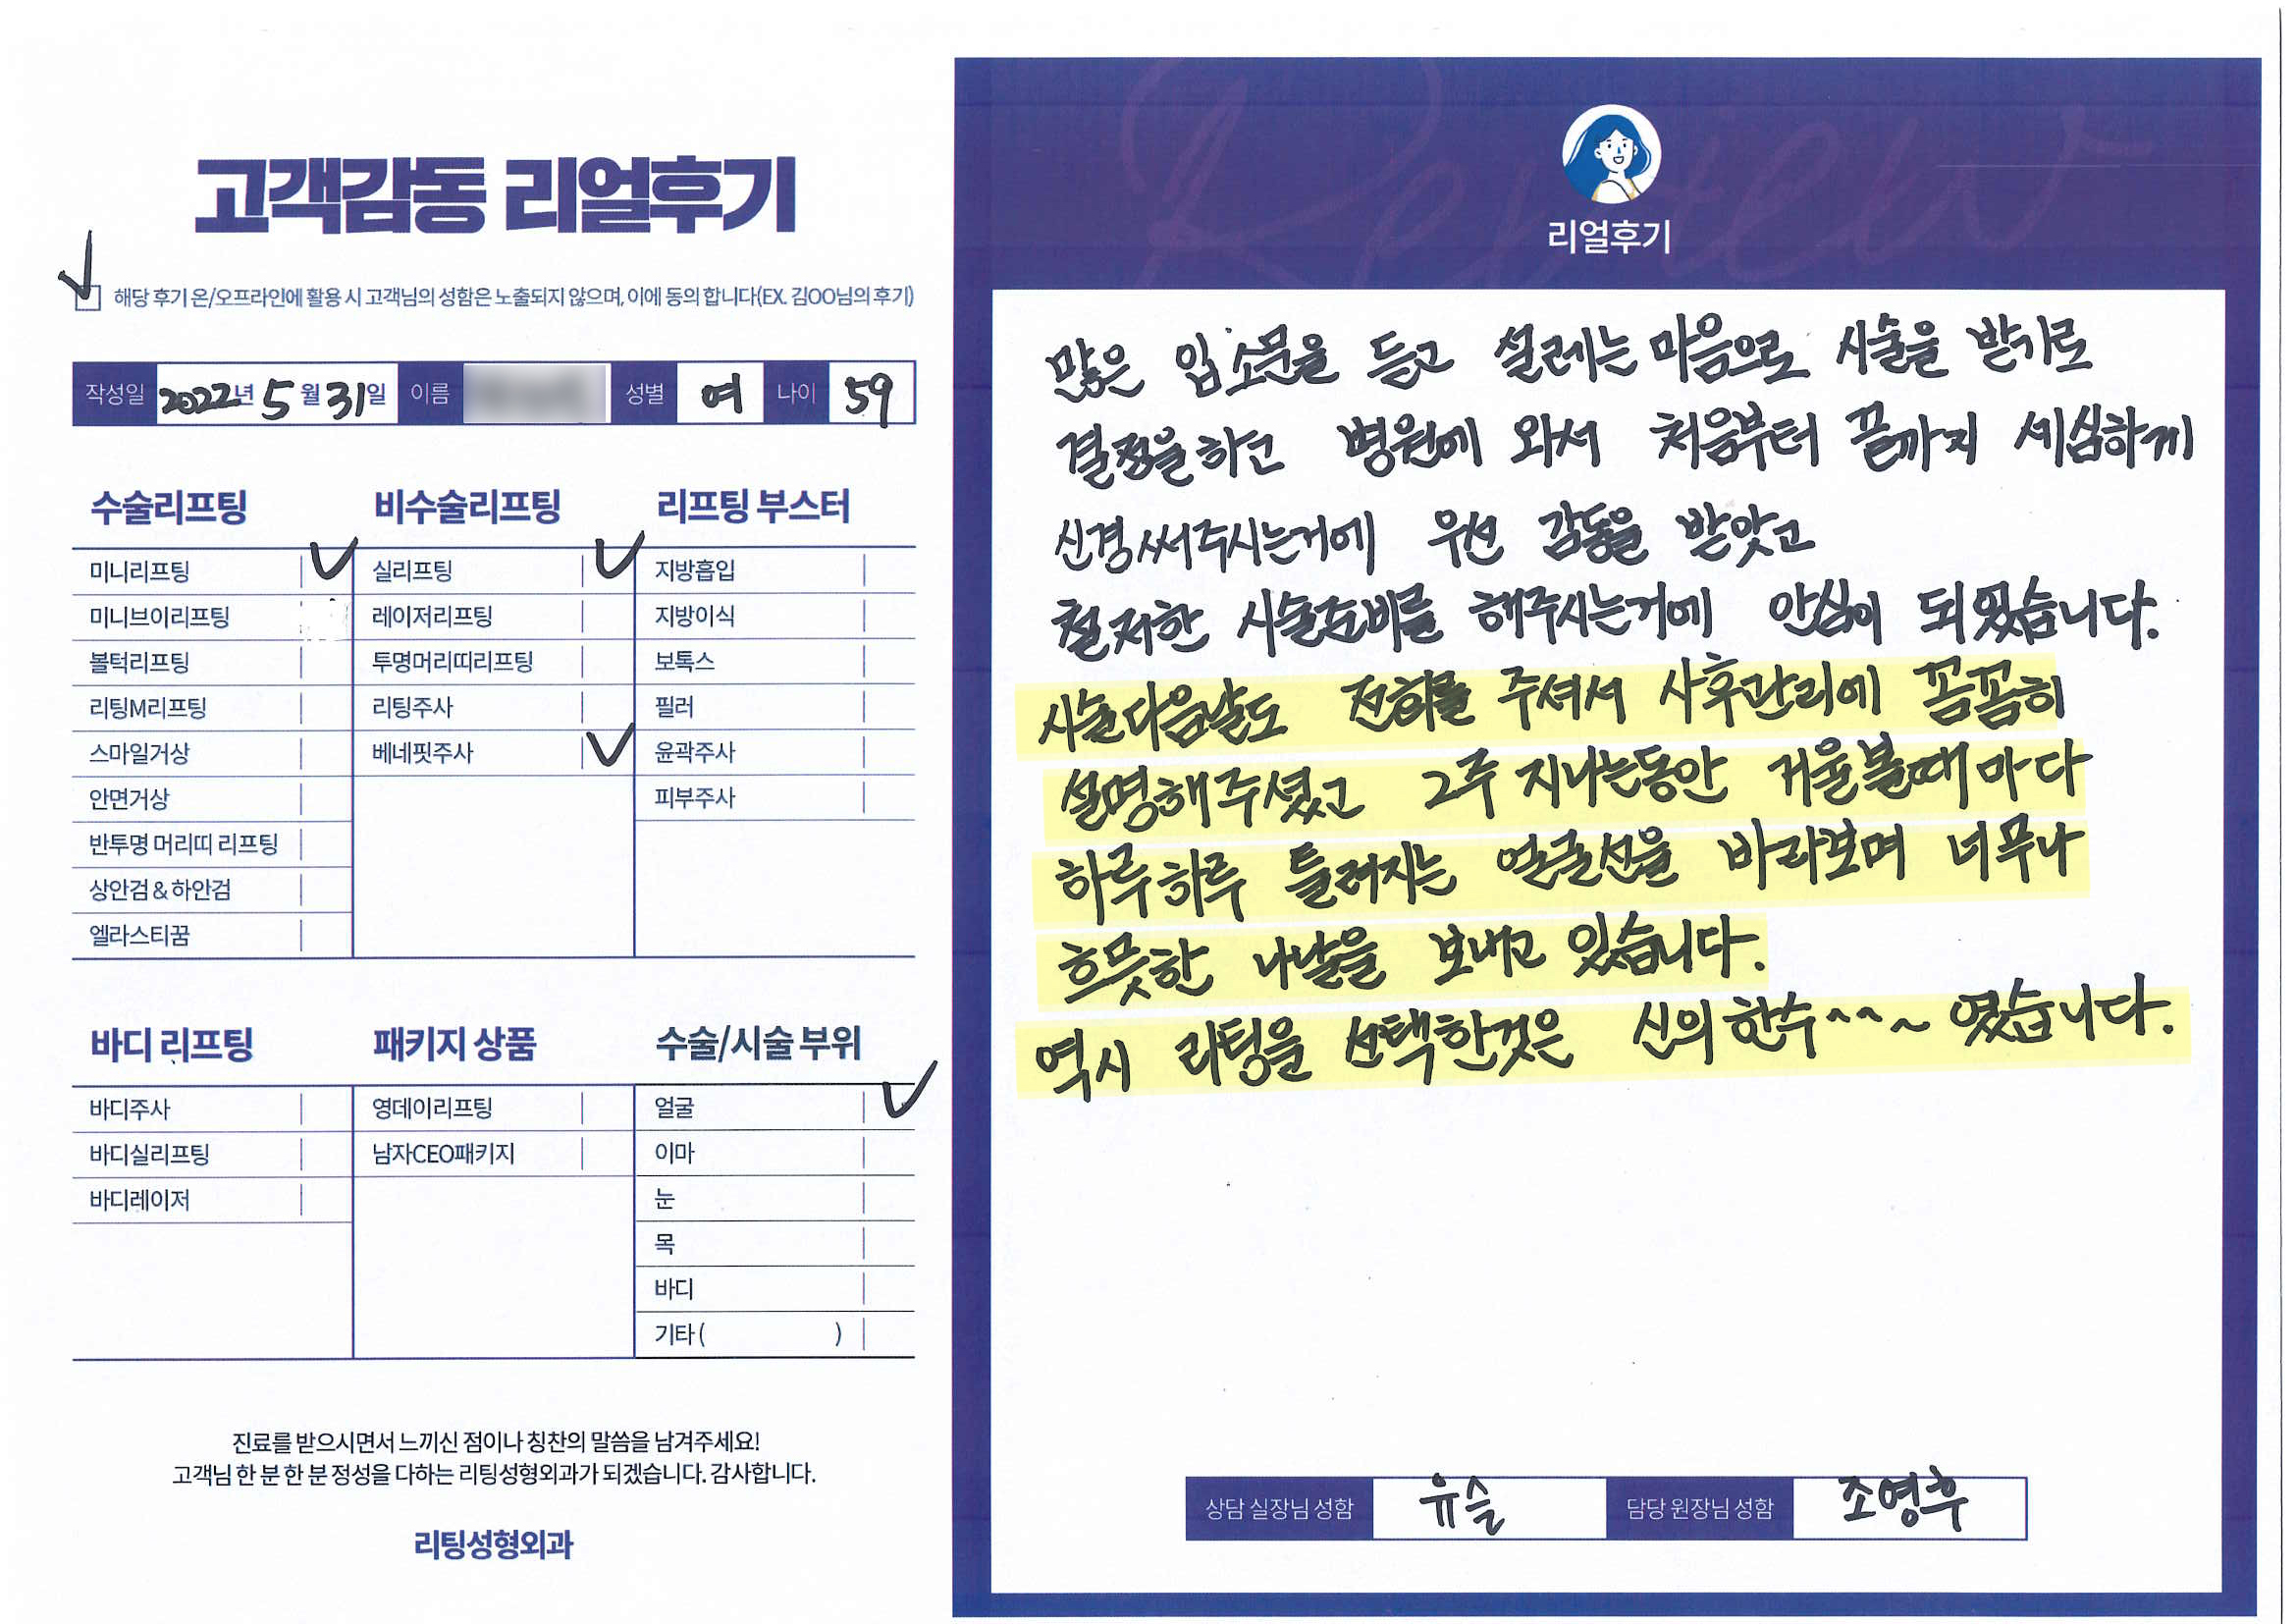 고객감동 리얼후기
해당 후기 온/오프라인에 활용 시 고객님의 성함은 노출되지 않으며, 이에 동의 합니다(EX. 김OO님의 후기)
작성일 2022년 5월 31일 이름 성별 여 나이 59
수술리프팅
미니리프팅
미니브이리프팅
볼턱리프팅
리팅M리프팅
스마일거상
안면거상
반투명 머리띠 리프팅
상안검 & 하안검
엘라스티꿈
비수술리프팅
실리프팅
레이저리프팅
투명머리띠리프팅
리팅주사
베네핏주사
리프팅 부스터
지방흡입
지방이식
보톡스
필러
윤곽주사
피부주사
바디 리프팅
바디주사
바디실리프팅
바디레이저
패키지 상품
영데이리프팅
남자CEO패키지
수술/시술 부위
얼굴
이마
눈
목
바디
기타 ( )
진료를 받으시면서 느끼신 점이나 칭찬의 말씀을 남겨주세요!
고객님 한 분 한 분 정성을 다하는 리팅성형외과가 되겠습니다. 감사합니다.
리팅성형외과
Review
리얼후기
많은 입소문을 듣고 설레는 마음으로 시술을 받기로
결정을하고 병원에 와서 처음부터 끝까지 세심하게
신경써주시는거에 우선 감동을 받앗고
철저한 시술준비를 해주시는거에 안심이 되였습니다.
시술다음날도 전화를 주셔서 사후관리에 꼼꼼히
설명해주셨고 2주 지나는동안 거울볼때마다
하루하루 틀려지는 얼굴선을 바라보며 너무나
흐뭇한 나날을 보내고 있습니다.
역시 리팅을 선택한것은 신의한수^^~ 였습니다.
상담 실장님 성함 유슬 담당 원장님 성함 조영후